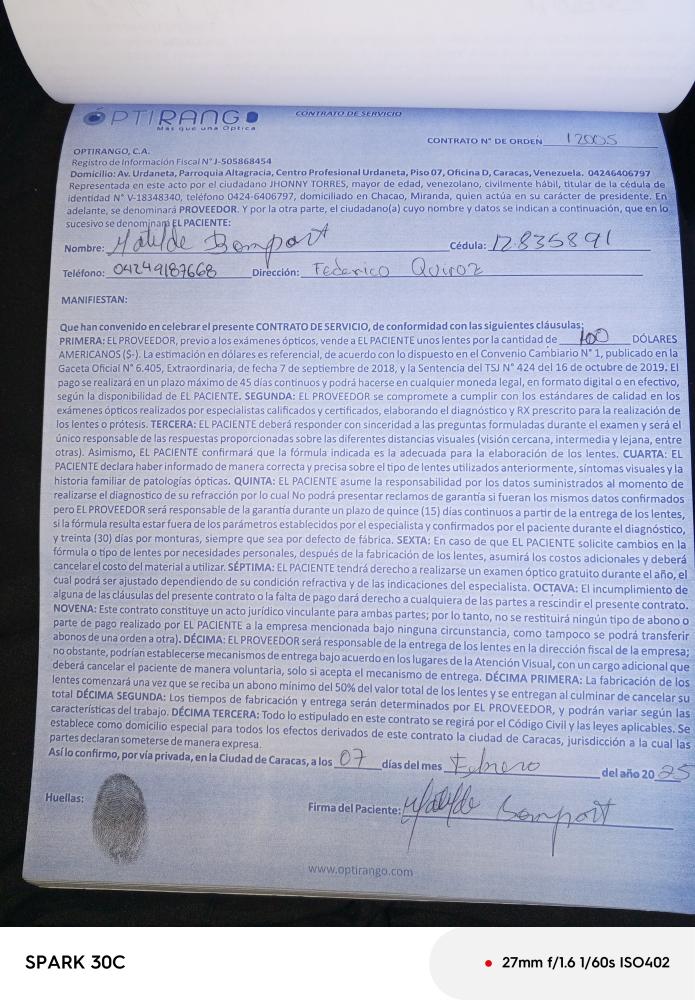 ÓPTIRANGO
Más que una Óptica
CONTRATO DE SERVICIO
CONTRATO N° DE ORDEN 12005
OPTIRANGO, C.A.
Registro de Información Fiscal N° J-505868454
Domicilio: Av. Urdaneta, Parroquia Altagracia, Centro Profesional Urdaneta, Piso 07, Oficina D, Caracas, Venezuela. 04246406797
Representada en este acto por el ciudadano JHONNY TORRES, mayor de edad, venezolano, civilmente hábil, titular de la cédula de
identidad N° V-18348340, teléfono 0424-6406797, domiciliado en Chacao, Miranda, quien actúa en su carácter de presidente. En
adelante, se denominará PROVEEDOR. Y por la otra parte, el ciudadano(a) cuyo nombre y datos se indican a continuación, que en lo
sucesivo se denominará EL PACIENTE:
Nombre: Matilde Bompart Cédula: 12.835891
Teléfono: 04249187668 Dirección: Federico Quiroz
MANIFIESTAN:
Que han convenido en celebrar el presente CONTRATO DE SERVICIO, de conformidad con las siguientes cláusulas:
PRIMERA: EL PROVEEDOR, previo a los exámenes ópticos, vende a EL PACIENTE unos lentes por la cantidad de 100 DÓLARES
AMERICANOS ($-). La estimación en dólares es referencial, de acuerdo con lo dispuesto en el Convenio Cambiario N° 1, publicado en la
Gaceta Oficial N° 6.405, Extraordinaria, de fecha 7 de septiembre de 2018, y la Sentencia del TSJ N° 424 del 16 de octubre de 2019. El
pago se realizará en un plazo máximo de 45 días continuos y podrá hacerse en cualquier moneda legal, en formato digital o en efectivo,
según la disponibilidad de EL PACIENTE. SEGUNDA: EL PROVEEDOR se compromete a cumplir con los estándares de calidad en los
exámenes ópticos realizados por especialistas calificados y certificados, elaborando el diagnóstico y RX prescrito para la realización de
los lentes o prótesis. TERCERA: EL PACIENTE deberá responder con sinceridad a las preguntas formuladas durante el examen y será el
único responsable de las respuestas proporcionadas sobre las diferentes distancias visuales (visión cercana, intermedia y lejana, entre
otras). Asimismo, EL PACIENTE confirmará que la fórmula indicada es la adecuada para la elaboración de los lentes. CUARTA: EL
PACIENTE declara haber informado de manera correcta y precisa sobre el tipo de lentes utilizados anteriormente, síntomas visuales y la
historia familiar de patologías ópticas. QUINTA: EL PACIENTE asume la responsabilidad por los datos suministrados al momento de
realizarse el diagnostico de su refracción por lo cual No podrá presentar reclamos de garantía si fueran los mismos datos confirmados
pero EL PROVEEDOR será responsable de la garantía durante un plazo de quince (15) días continuos a partir de la entrega de los lentes,
si la fórmula resulta estar fuera de los parámetros establecidos por el especialista y confirmados por el paciente durante el diagnóstico,
y treinta (30) días por monturas, siempre que sea por defecto de fábrica. SEXTA: En caso de que EL PACIENTE solicite cambios en la
fórmula o tipo de lentes por necesidades personales, después de la fabricación de los lentes, asumirá los costos adicionales y deberá
cancelar el costo del material a utilizar. SÉPTIMA: EL PACIENTE tendrá derecho a realizarse un examen óptico gratuito durante el año, el
cual podrá ser ajustado dependiendo de su condición refractiva y de las indicaciones del especialista. OCTAVA: El incumplimiento de
alguna de las cláusulas del presente contrato o la falta de pago dará derecho a cualquiera de las partes a rescindir el presente contrato.
NOVENA: Este contrato constituye un acto jurídico vinculante para ambas partes; por lo tanto, no se restituirá ningún tipo de abono o
parte de pago realizado por EL PACIENTE a la empresa mencionada bajo ninguna circunstancia, como tampoco se podrá transferir
abonos de una orden a otra). DÉCIMA: EL PROVEEDOR será responsable de la entrega de los lentes en la dirección fiscal de la empresa;
no obstante, podrían establecerse mecanismos de entrega bajo acuerdo en los lugares de la Atención Visual, con un cargo adicional que
deberá cancelar el paciente de manera voluntaria, solo si acepta el mecanismo de entrega. DÉCIMA PRIMERA: La fabricación de los
lentes comenzará una vez que se reciba un abono mínimo del 50% del valor total de los lentes y se entregan al culminar de cancelar su
total DÉCIMA SEGUNDA: Los tiempos de fabricación y entrega serán determinados por EL PROVEEDOR, y podrán variar según las
características del trabajo. DÉCIMA TERCERA: Todo lo estipulado en este contrato se regirá por el Código Civil y las leyes aplicables. Se
establece como domicilio especial para todos los efectos derivados de este contrato la ciudad de Caracas, jurisdicción a la cual las
partes declaran someterse de manera expresa.
Así lo confirmo, por vía privada, en la Ciudad de Caracas, a los 07 días del mes Febrero del año 2025
Huellas:
Firma del Paciente: Matilde Bompart
www.optirango.com
SPARK 30C
27mm f/1.6 1/60s ISO402